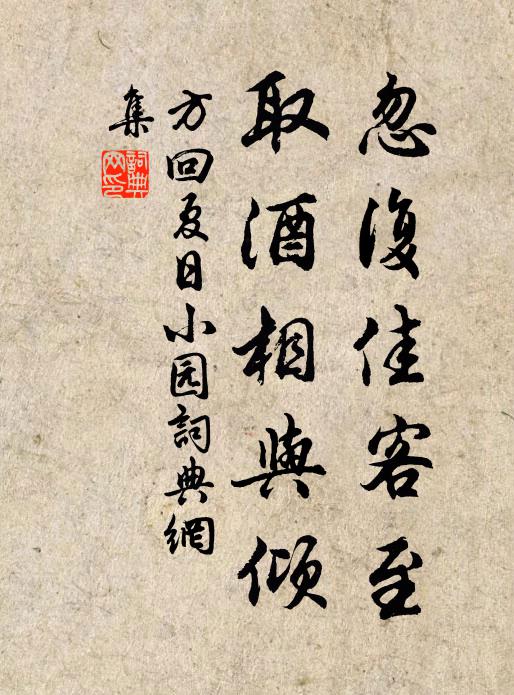 忽復佳客至
取酒相與傾
方回夏日小园詞典網
集
詞典
网印